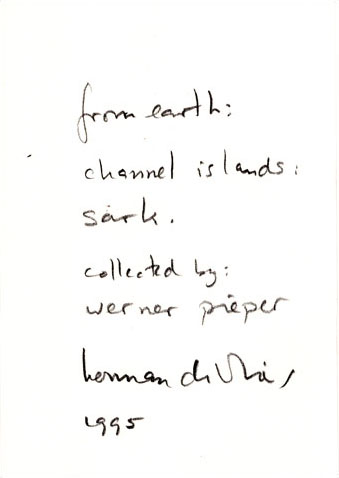 from earth:
channel islands:
sark.
collected by:
werner pieper
herman de vries,
1995